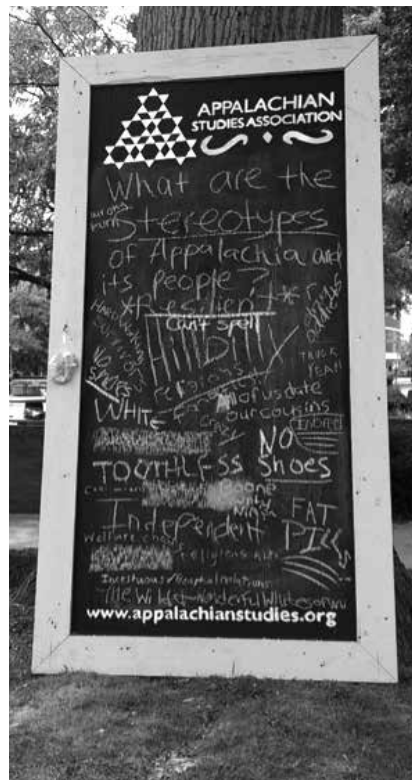 APPALACHIAN
STUDIES ASSOCIATION
What are the
wrong
turn
stereotypes
of Appalachia and
its people?
*Resilient*
Can't spell
Hard working
Hillbilly
TRUCK
YEAH
religious
All of us date
our cousins
WHITE
Inbred
NO
shoes
TOOTHLESS
Coal miners
Boone
FAT
Independent
PILLS
Welfare
religious nuts
The Wild & Wonderful Whites of WV
www.appalachianstudies.org